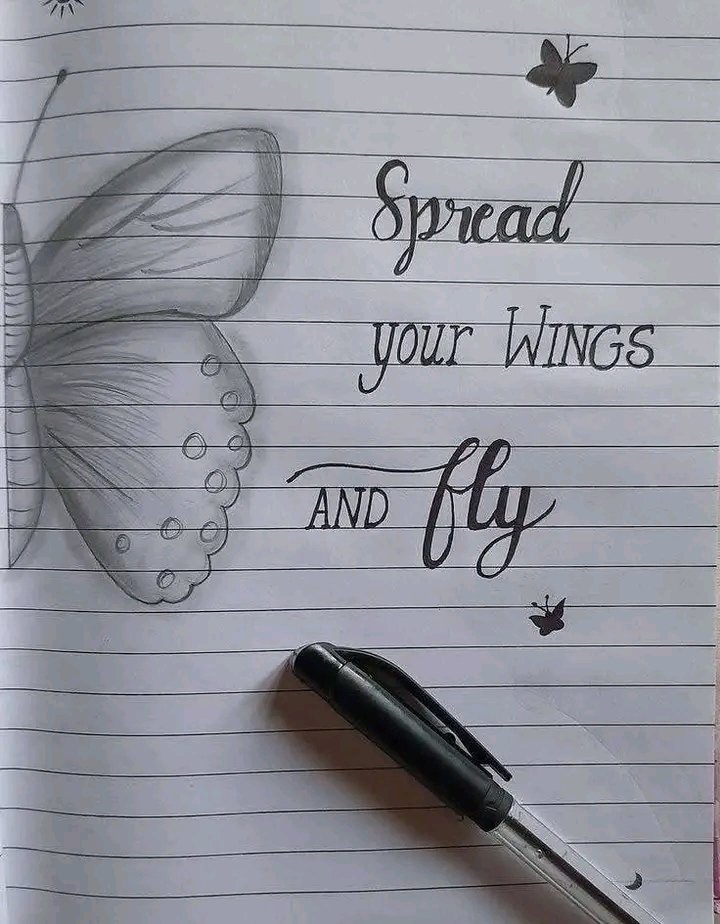 Spread
your WINGS
AND fly